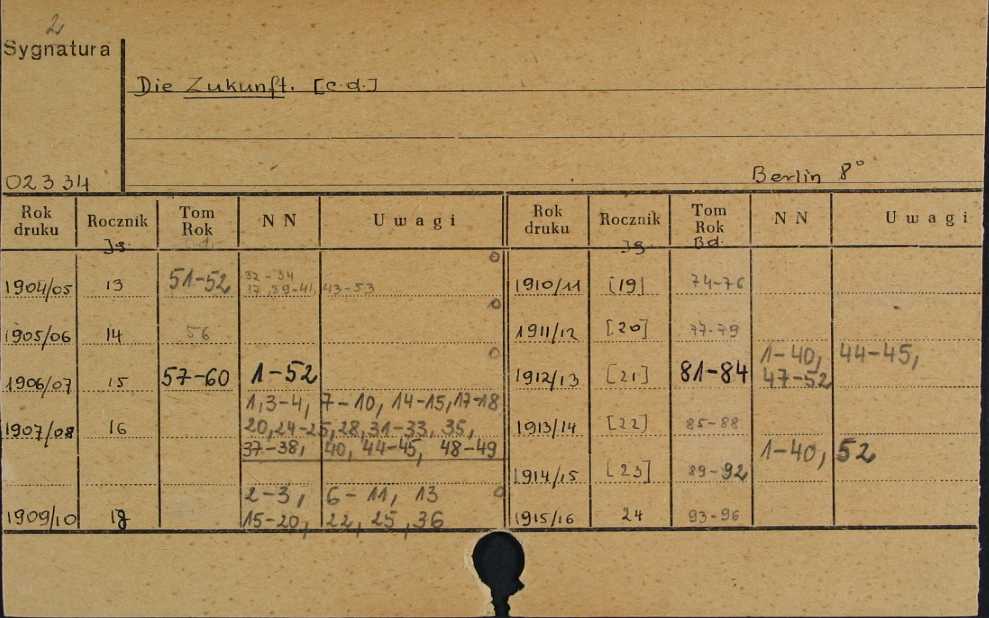 2
Sygnatura
Die Zukunft. [c.d.]
02334
Berlin 8°
Rok druku Rocznik Tom Rok NN Uwagi Rok druku Rocznik Tom Rok NN Uwagi
Jg. Jg. Bd.
1904/05 13 51-52 32-34
17, 39-41, 43-53
1910/11 [19] 74-76
1905/06 14 56
1911/12 [20] 77-79
1906/07 15 57-60 1-52
1912/13 [21] 81-84 1-40, 44-45,
47-52
1907/08 16 1,3-4, 7-10, 14-15, 17-18
20, 24-25, 28, 31-33, 35,
37-38, 40, 44-45, 48-49
1913/14 [22] 85-88
1914/15 [23] 89-92 1-40, 52
1909/10 18 2-3, 6-11, 13
15-20, 22, 25, 36
1915/16 24 93-96